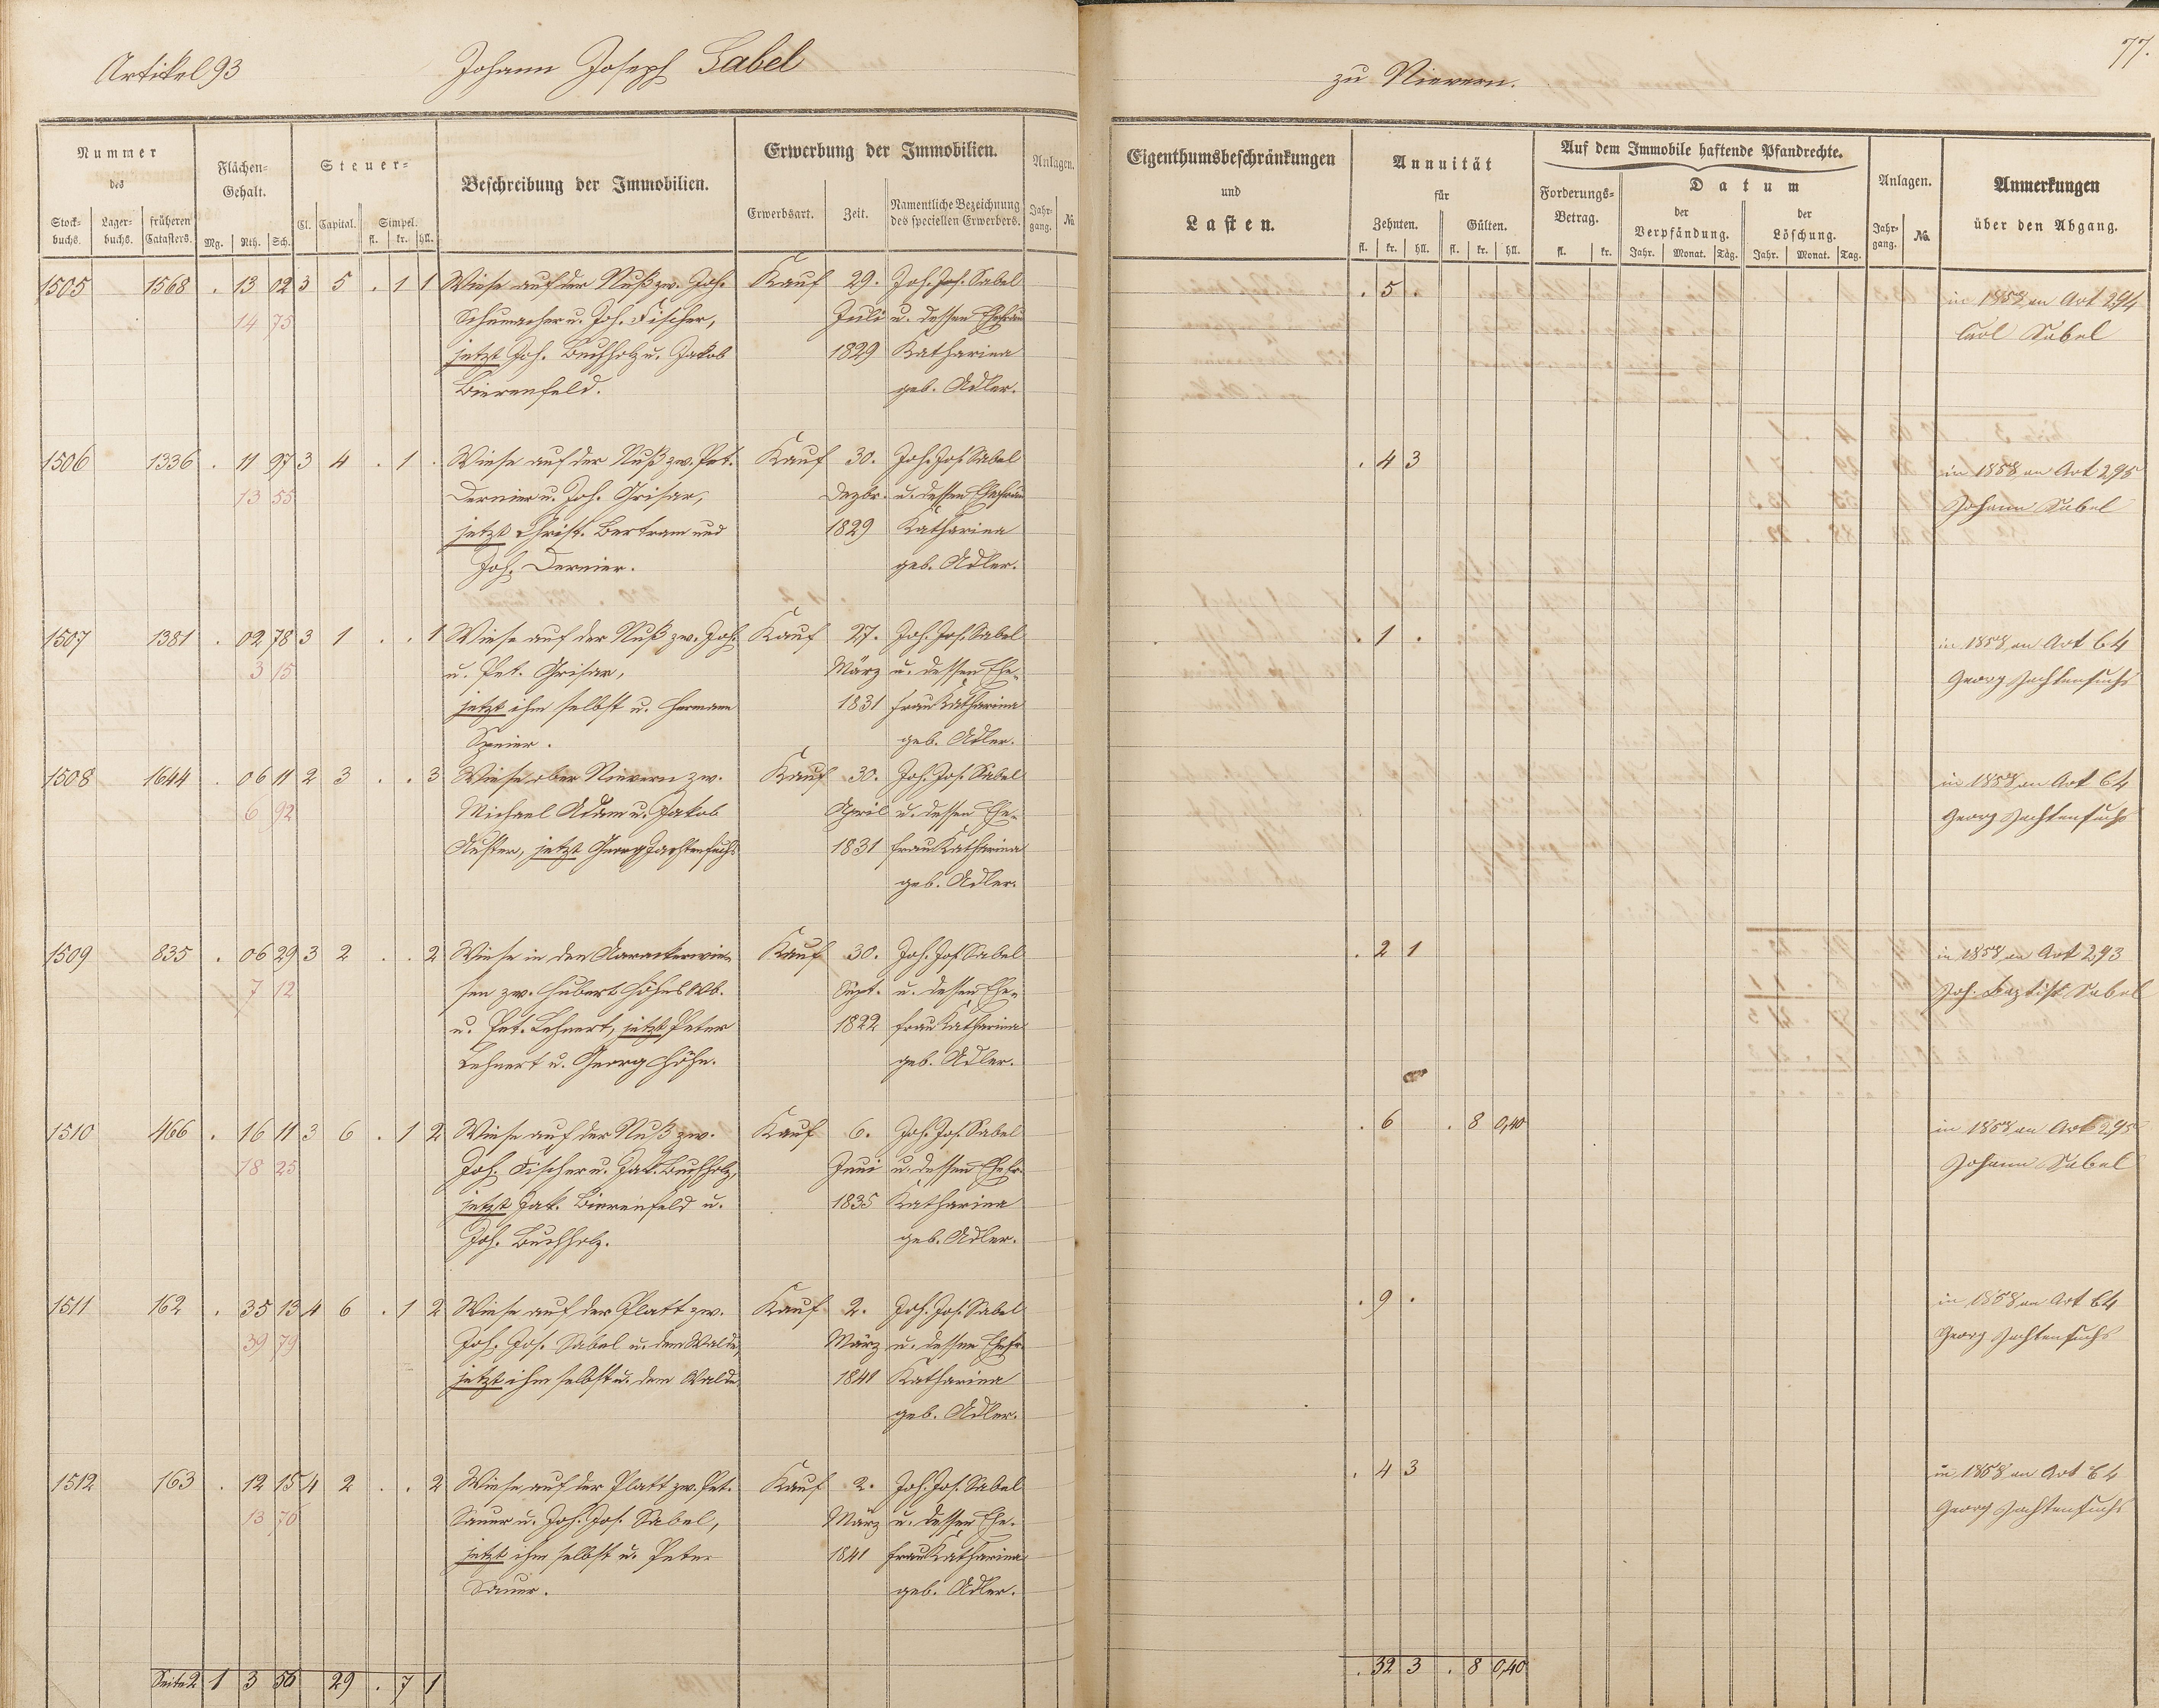 Artikel 93 Johann Joseph Sabel zu Nievern. 77.
Nummer des
Flächen-Gehalt.
Steuer-
Beschreibung der Immobilien.
Erwerbung der Immobilien.
Anlagen.
Stock-buchs. Lager-buchs. früheren Catasters. Mg. Rth. Sch. Cl. Capital. Simpel. fl. kr. hll. Erwerbsart. Zeit. Namentliche Bezeichnung des speciellen Erwerbers. Jahr-gang. No.
Eigenthumsbeschränkungen und Lasten.
Annuität für
Zehnten. fl. kr. hll. Gülten. fl. kr. hll.
Auf dem Immobile haftende Pfandrechte.
Forderungs-Betrag. fl. kr.
Datum
der Verpfändung. Jahr. Monat. Tag.
der Löschung. Jahr. Monat. Tag.
Anlagen. Jahr-gang. No.
Anmerkungen über den Abgang.
1505 1568 . 13 02 3 5 . 1 1 Wiese auf der Nuß zw. Joh. Kauf 29. Joh. Jos. Sabel . 5 . in 1858 an Art 294
14 75 Schumacher u. Joh. Fischer, Juli u. dessen Ehefrau Carl Sabel
jetzt Joh. Buchholz u. Jakob 1829 Katharina
Bierenfeld. geb. Adler.
1506 1336 . 11 97 3 4 . 1 . Wiese auf der Nuß zw. Pet. Kauf 30. Joh. Jos. Sabel . 4 3 in 1858 an Art 295
13 55 Dernier u. Joh. Grisar, Dezbr. u. dessen Ehefrau Johann Sabel
jetzt Christ. Bertram und 1829 Katharina
Joh. Dernier. geb. Adler.
1507 1381 . 02 78 3 1 . . 1 Wiese auf der Nuß zw. Joh. Kauf 27. Joh. Jos. Sabel . 1 . in 1858 an Art 64
3 15 u. Pet. Grisar, März u. dessen Ehe- Georg Jachtenfuchs
jetzt ihm selbst u. Hermann 1831 frau Katharina
Speier. geb. Adler.
1508 1644 . 06 11 2 3 . . 3 Wiese ober Nievern zw. Kauf 30. Joh. Jos. Sabel in 1858 an Art 64
6 92 Michael Adam u. Jakob April u. dessen Ehe- Georg Jachtenfuchs
jetzt Georg Jachtenfuchs 1831 frau Katharina
geb. Adler.
1509 835 . 06 29 3 2 . . 2 Wiese in den Kauf 30. Joh. Jos. Sabel . 2 1 in 1858 an Art 293
7 12 sen zw. Hubert Höhns Wb. Sept. u. dessen Ehe- Joh. Baptist Sabel
u. Pet. Lehnert, jetzt Peter 1822 frau Katharina
Lehnert u. Georg Höhn. geb. Adler.
1510 466 . 16 11 3 6 . 1 2 Wiese auf der Nuß zw. Kauf 6. Joh. Jos. Sabel . 6 . 8 0,40 in 1858 an Art 295
18 25 Joh. Fischer u. Jak. Buchholz, Juni u. dessen Ehefr. Johann Sabel
jetzt Jak. Bierenfeld u. 1835 Katharina
Joh. Buchholz. geb. Adler.
1511 162 . 35 13 4 6 . 1 2 Wiese auf der Platt zw. Kauf 2. Joh. Jos. Sabel . 9 . in 1858 an Art 64
39 79 Joh. Jos. Sabel u. dem Walde, März u. dessen Ehefr. Georg Jachtenfuchs
jetzt ihm selbst u. dem Walde 1841 Katharina
geb. Adler.
1512 163 . 12 15 4 2 . . 2 Wiese auf der Platt zw. Pet. Kauf 2. Joh. Jos. Sabel . 4 3 in 1858 an Art 64
13 76 Sauer u. Joh. Jos. Sabel, März u. dessen Ehe- Georg Jachtenfuchs
jetzt ihm selbst u. Peter 1841 frau Katharina
Sauer. geb. Adler.
Seite 2 1 3 56 29 . 7 1 . 32 3 . 8 0,40